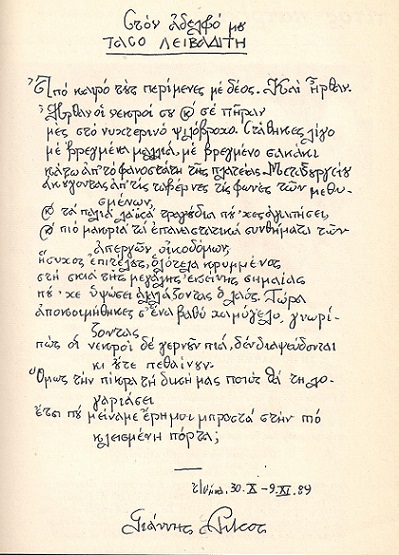 Στόν ἀδελφό μου
ΤΑΣΟ ΛΕΙΒΑΔΙΤΗ
Ἀπό καιρό τούς περίμενες μέ δέος. Καί ἦρθαν.
Ἦρθαν οἱ νεκροί σου καί σέ πῆραν
μές στό νυχτερινό ψιλόβροχο. Στάθηκες λίγο
μέ βρεγμένα μαλλιά, μέ βρεγμένο σακάκι
κάτω ἀπ' τό φανοστάτη τῆς πλατείας Μεταξουργείου
ἀκούγοντας ἀπ' τίς ταβέρνες τίς φωνές τῶν μεθυ-
σμένων,
καί τά παλιά λαϊκά τραγούδια πού 'χες ἀγαπήσει,
καί πιό μακριά τά ἐπαναστατικά συνθήματα τῶν
ἀπεργῶν οἰκοδόμων,
ἥσυχος ἐπιτέλους, ὁλότελα κρυμμένος
στή σκιά τῆς μεγάλης ἐκείνης σημαίας
πού 'χε ὑψώσει ἀλλάζοντας ὁ λαός. Τώρα
ἀποκοιμήθηκες σ' ἕνα βαθύ χαμόγελο, γνωρί-
ζοντας
πώς οἱ νεκροί δέ γερνᾶν πιά, δέν διαψεύδονται
κι οὔτε πεθαίνουν.
Ὅμως τήν πίκρα τή δική μας ποιός θά τή λο-
γαριάσει
ἔτσι πού μείναμε ἔρημοι μπροστά στήν πιό
κλεισμένη πόρτα;
Ἀθήνα, 30.Χ – 9.ΧΙ.89
Γιάννης Ρίτσος